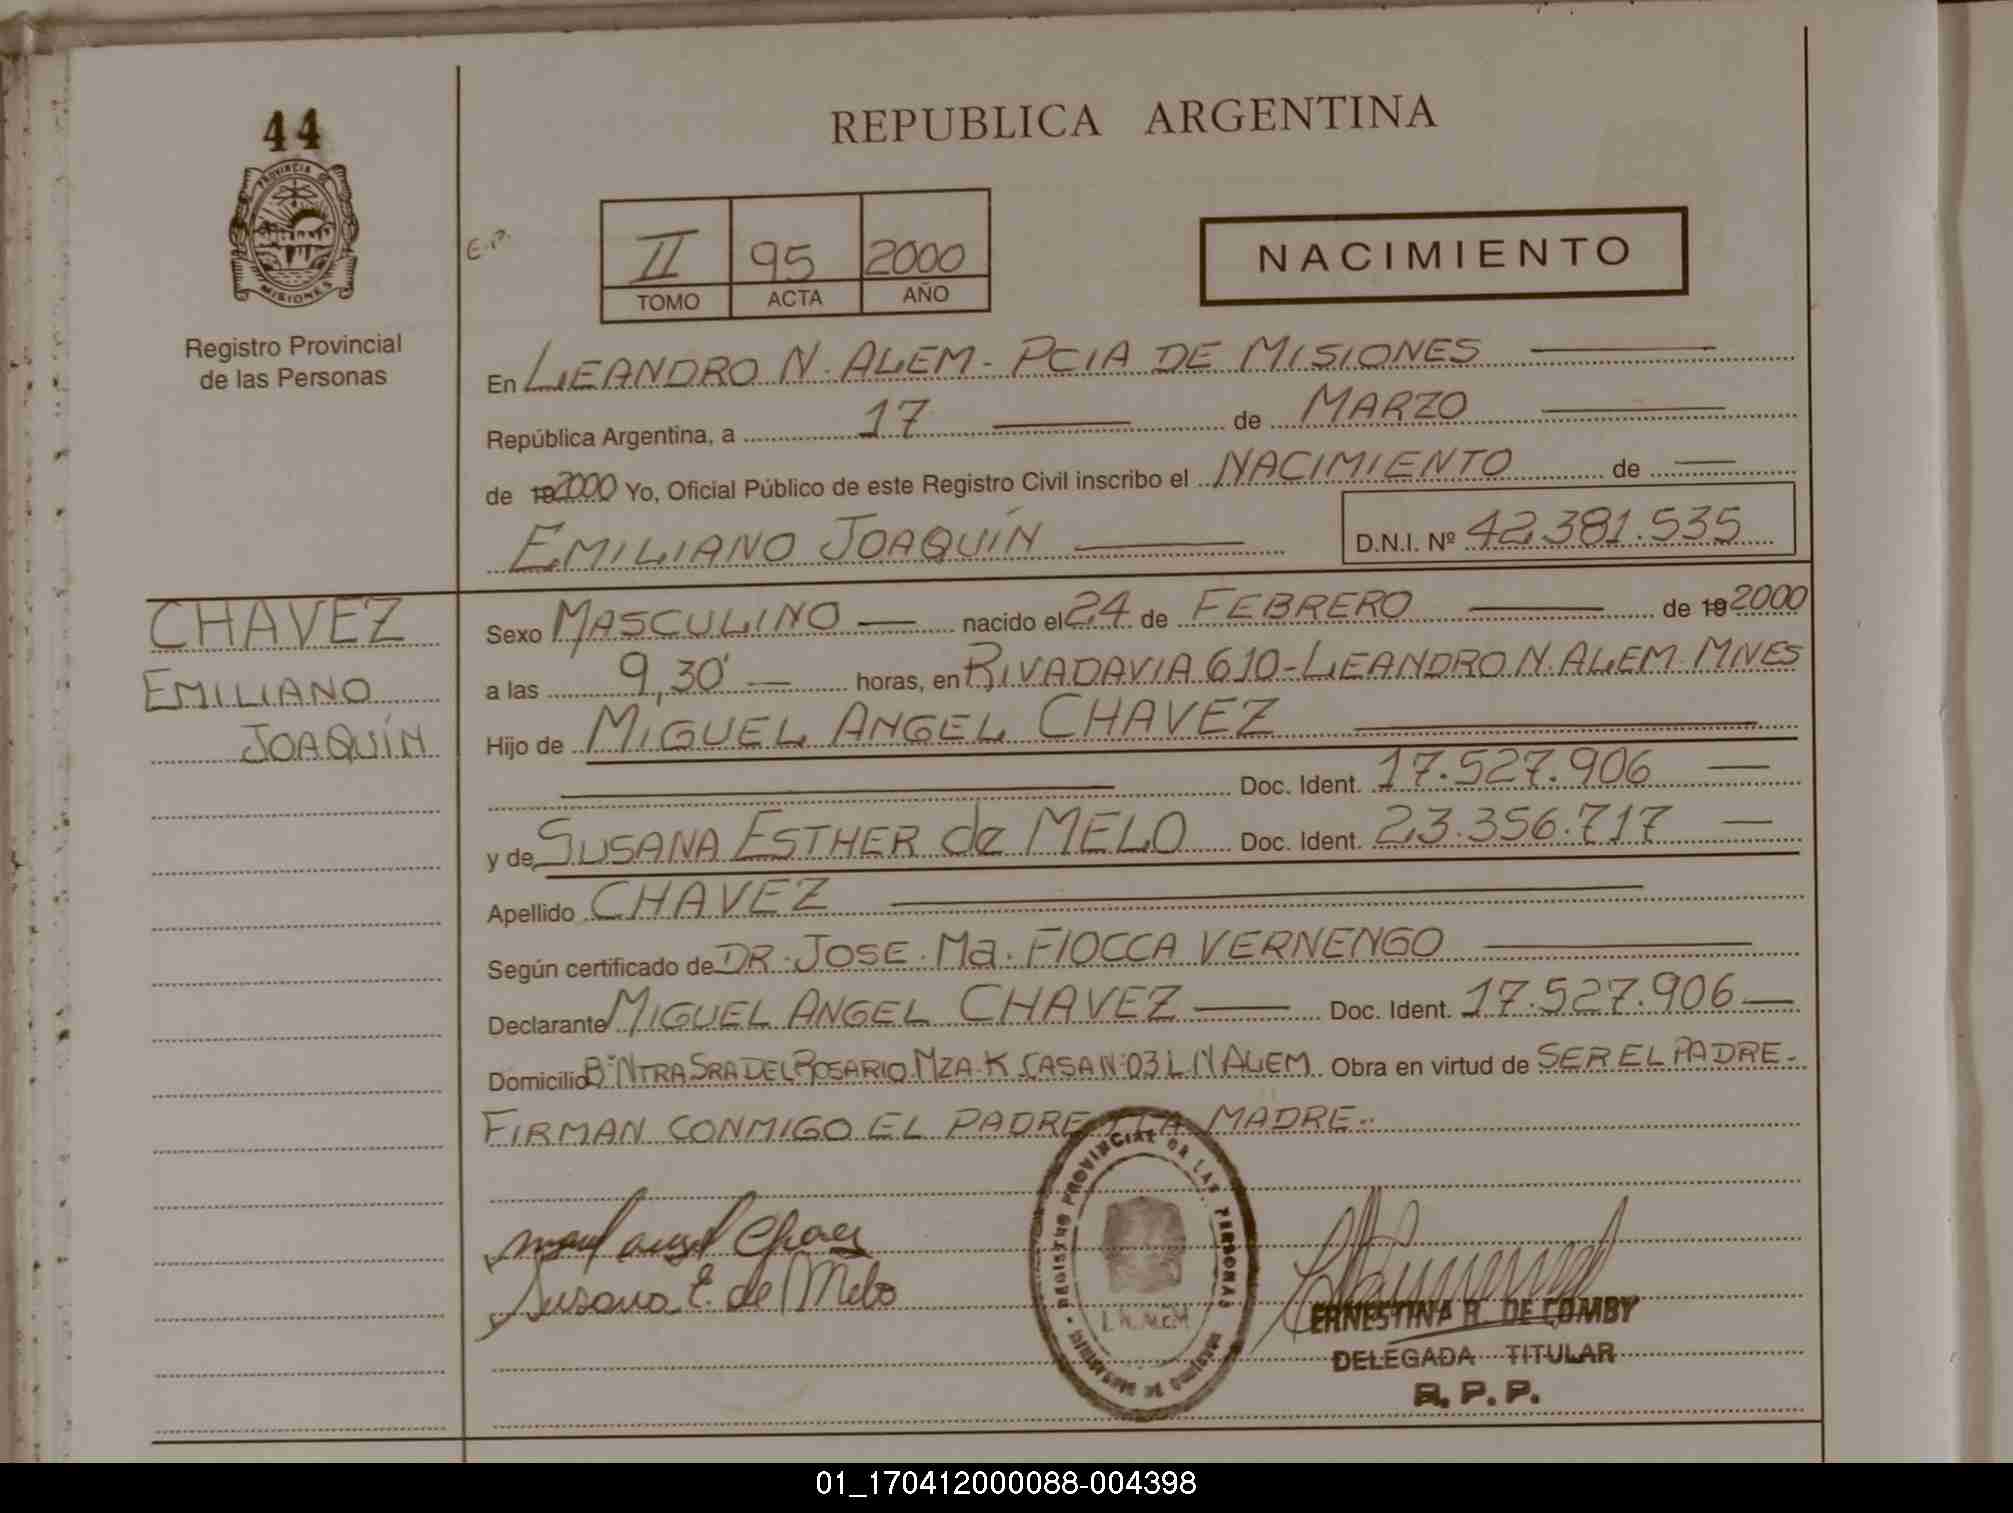 44
PROVINCIA
MISIONES
Registro Provincial
de las Personas
CHAVEZ
EMILIANO
JOAQUÍN
REPUBLICA ARGENTINA
E.P.
II 95 2000
TOMO ACTA AÑO
NACIMIENTO
En LEANDRO N. ALEM - PCIA DE MISIONES
República Argentina, a 17 de MARZO
de 192000 Yo, Oficial Público de este Registro Civil inscribo el NACIMIENTO de
EMILIANO JOAQUÍN D.N.I. Nº 42.381.535
Sexo MASCULINO nacido el 24 de FEBRERO de 19 2000
a las 9,30' horas, en RIVADAVIA 610-LEANDRO N. ALEM-MNES
Hijo de MIGUEL ANGEL CHAVEZ
Doc. Ident. 17.527.906
y de SUSANA ESTHER de MELO Doc. Ident. 23.356.717
Apellido CHAVEZ
Según certificado de DR. JOSE. Ma. FIOCCA VERNENGO
Declarante MIGUEL ANGEL CHAVEZ Doc. Ident. 17.527.906
Domicilio Bº NTRA SRA DEL ROSARIO. MZA. K CASA Nº 03 L.N ALEM Obra en virtud de SER EL PADRE.-
FIRMAN CONMIGO EL PADRE Y LA MADRE.-
REGISTRO PROVINCIAL DE LAS PERSONAS
L.N. ALEM
Miguel angel Chavez
Susana E. de Melo
ERNESTINA R. DE COMBY
DELEGADA TITULAR
R. P. P.
01_170412000088-004398